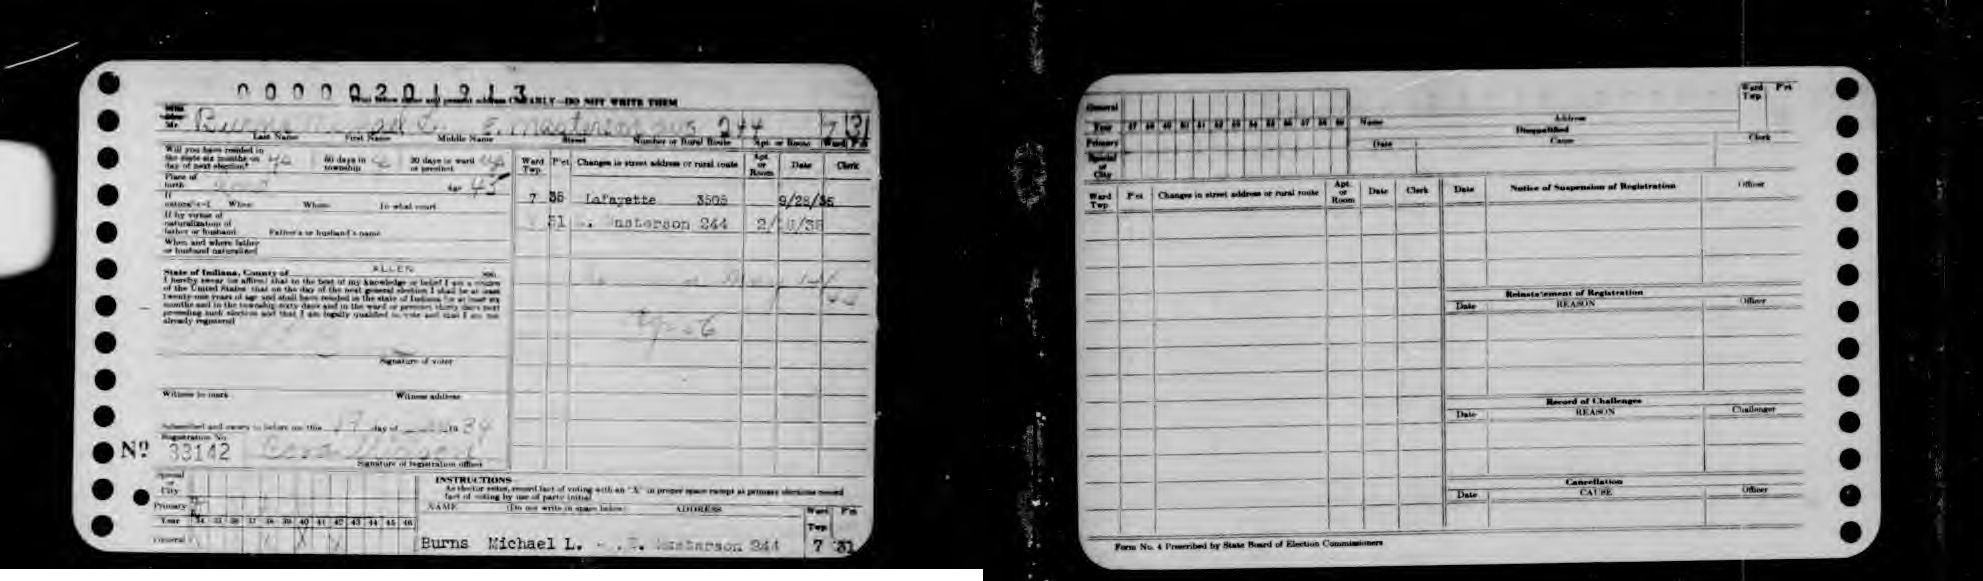 0 0 0 0 0 2 0 1 9 1 3
Print below name and present address CLEARLY—DO NOT WRITE THEM
Mr. Burns Michael L. E. Masterson ave 244 7 31
Last Name First Name Middle Name Street Number or Rural Route Apt. or Room Ward Pct
Will you have resided in
the state six months on
day of next election?
60 days in
township
30 days in ward
or precinct
Place of
birth
Age 45
If
natural'z'd When Where In what court
If by virtue of
naturalization of
father or husband Father's or husband's name
When and where father
or husband naturalized
State of Indiana, County of ALLEN
I hereby swear (or affirm) that to the best of my knowledge or belief I am a citizen
of the United States that on the day of the next general election I shall be at least
twenty-one years of age and shall have resided in the state of Indiana for at least six
months and in the township sixty days and in the ward or precinct thirty days next
preceding such election and that I am legally qualified to vote and that I am not
already registered
Signature of voter
Witness to mark Witness address
Subscribed and sworn to before me this 17 day of 19 34
Registration No.
No 33142
Signature of registration officer
Ward Twp. P'ct Changes in street address or rural route Apt. or Room Date Clerk
7 35 Lafayette 3505 9/28/35
31 Masterson 244
Special
or
City
Primary
Year 34 35 36 37 38 39 40 41 42 43 44 45 46
General
INSTRUCTIONS
As elector votes, record fact of voting with an "X" in proper space except at primary elections record
fact of voting by use of party initial
NAME (Do not write in space below) ADDRESS Ward Twp P'ct
Burns Michael L. E. Masterson 244 7 31
General
Year 47 48 49 50 51 52 53 54 55 56 57 58 59
Primary
Special
or
City
Name Address
Ward
Twp.
P'ct
Disqualified
Date Cause Clerk
Ward
Twp.
P'ct Changes in street address or rural route Apt.
or
Room
Date Clerk
Date Notice of Suspension of Registration Officer
Reinstatement of Registration
Date REASON Officer
Record of Challenges
Date REASON Challenger
Cancellation
Date CAUSE Officer
Form No. 4 Prescribed by State Board of Election Commissioners